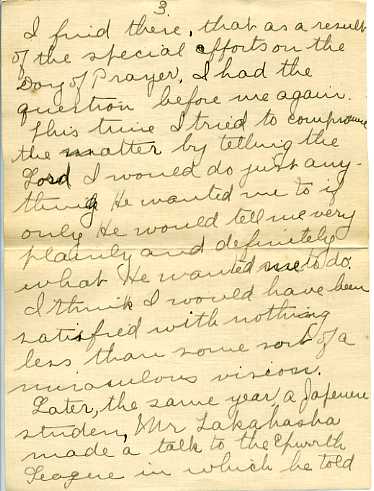 3.
I find there, that as a result
of the special efforts on the
Day of Prayer, I had the
question before me again.
This time I tried to compromise
the matter by telling the
Lord I would do just any-
thing He wanted me to if
only He would tell me very
plainly and definitely
what He wanted me to do.
I think I would have been
satisfied with nothing
less than some sort of a
miraculous vision.
Later, the same year, a Japenese
studen, Mr Takahasha
made a talk to the Epworth
League in which he told